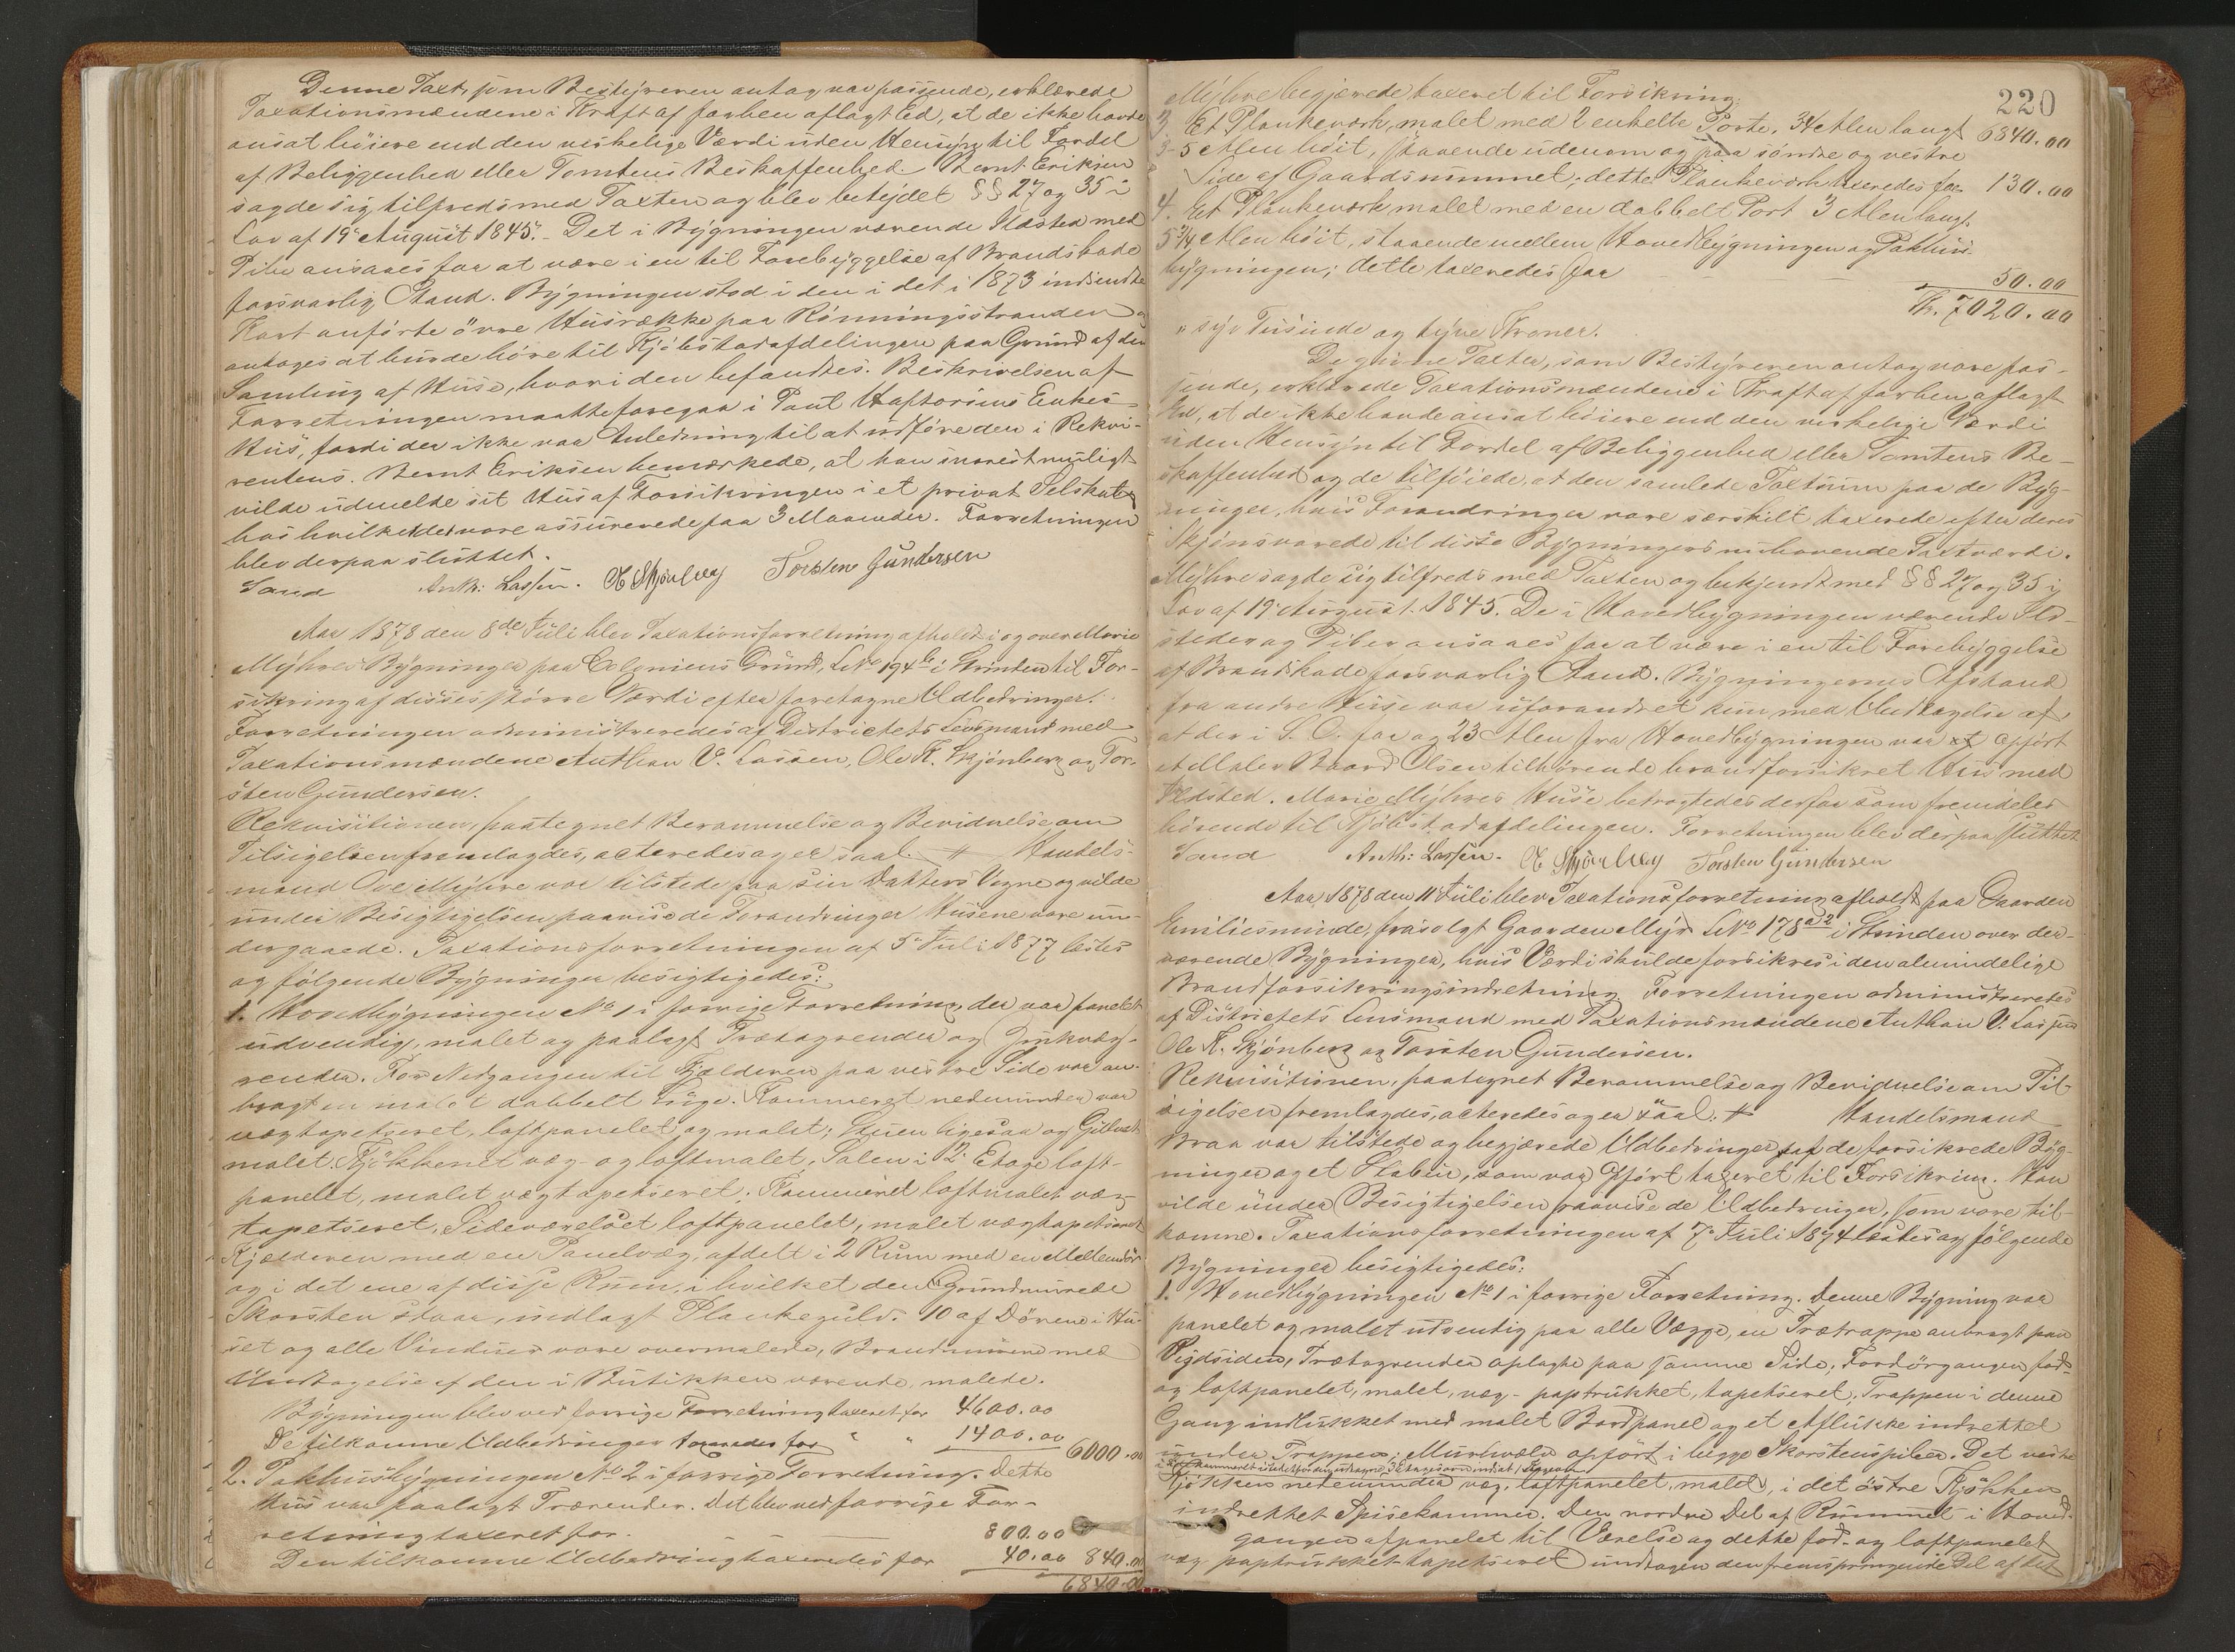 Denne Taxt, som Bestyreren antog var passende, erklærede
Taxationsmændene i Kraft af forhen aflagt Ed, at de ikke havde
ansat høiere end den virkelige Værdi uden Hensyn til Fordel
af Beliggenhed eller Tomtens Beskaffenhed. Bernt Eriksen
sagde sig tilfreds med Taxten og blev betydet §§ 27 og 35 i
Lov af 19de August 1845. - Det i Bygningen værende Ildsted med
Pibe ansaaes for at være i en til Forebyggelse af Brandskade
forsvarlig Stand. Bygningen stod i den i det i 1873 indsendte
Kart anførte øvre Husrække paa Rønningsstranden og
antoges at burde høre til Kjøbstadafdelingen paa Grund af den
Samling af Huse, hvori den befandtes. Beskrivelsen af
Forretningen maatte foregaa i Poul Haftorsens Enkes
Hus, fordi der ikke var Anledning til at udføre den i Rekvi-
rentens. Bernt Eriksen bemærkede, at han snarest muligt
vilde udmelde sit Hus af Forsikringen i et privat Selskab
hos hvilket det vare assurerede paa 3 Maaneder. Forretningen
blev derpaa sluttet.
Sand Anth: Lassen. O Skjønberg Torsten Gundersen
Aar 1878 den 8de Juli blev Taxationsforretning afholdt i og over Marie
Myhres Bygninger paa Coloniens Grund, LNo 194b i Strinden til For-
sikring af disses større Værdi efter foretagne Udbedringer.
Forretningen administreredes af Districtets Lensmand med
Taxationsmændene Anthon V. Lassen, Ole K. Skjønberg og Tor-
sten Gundersen.
Rekvisitionen, paategnet Berammelse og Bevidnelse om
Tilsigelsen fremlagdes, acteredes og er saal. # Handels-
mand Ole Myhre var tilstede paa sin Datters Vegne og vilde
under Besigtigelsen paavise de Forandringer Husene vare un-
dergaaede. Taxationsforretningen af 5te Juli 1877 læstes
og følgende Bygninger besigtigedes:
1. Hovedbygningen No 1 i forrige Forretning, der var panelet
udvendig, malet og paalagt Trætagrender og Zinkvæg-
render. For Nedgangen til Kjælderen paa vestre Side var an-
bragt en malet dobbelt Luge. Kammeret nedenunder var
vægtapetseret, loftpanelet og malet; Stuen ligesaa og Gulvet
malet. Kjøkkenet væg- og loftmalet, Salen i 2. Etage loft-
panelet, malet vægtapetseret. Kammeret loftmalet væg-
tapetseret, Sideværelset loftpanelet, malet vægtapetseret
Kjælderen med en Panelvæg, afdelt i 2 Rum med en Mellemdør
og i det ene af disse Rum, i hvilket den Grundmurede
Skorsten staar, indlagt Plankegulv. 10 af Dørene i Hu-
set og alle Vinduer vare overmalede, Brandmurene med
Undtagelse af den i Butikken værende, malede.
Bygningen blev ved forrige Forretning taxeret for 4600.00
De tilkomne Udbedringer taxeredes for " " 1400.00 6000.00
2. Pakhusbygningen No 2 i forrige Forretning. Dette
Hus var paalagt Trærender. Det blev ved forrige For-
retning taxeret for. 800.00
Den tilkomne Udbedring taxeredes for 40.00 840.00
6840.00
220
Myhre begjærede taxeret til Forsikring:
3. Et Plankeværk, malet med 2 enkelte Porte, 34 Alen langt 6840.00
3-5 Alen høit, staaende udenom og paa søndre og vestre
Side af Gaardsrummet; dette Plankeværk taxeredes for 130.00
4. Et Plankeværk malet med en dobbelt Port 3 Alen langt,
5 3/4 Alen høit, staaende mellem Hovedbygningen og Pakhus-
bygningen; dette taxeredes for 50.00
Kr. 7020.00
" syv Tusinde og tyve Kroner.
De givne Taxter, som Bestyreren antog vare pas-
sende, erklærede Taxationsmændene i Kraft af forhen aflagt
Ed, at de ikke havde ansat høiere end den virkelige Værdi
uden Hensyn til Fordel af Beliggenhed eller Tomtens Be-
skaffenhed og de tilføiede, at den samlede Taxtsum paa de Byg-
ninger, hvis Forandringer vare særskilt taxerede efter deres
Skjøn svarede til disse Bygningers nuhavende Taxtværdi.
Myhre sagde sig tilfreds med Taxten og bekjendt med §§ 27 og 35 i
Lov af 19de August 1845. De i Hovedbygningen værende Ild-
steder og Piber ansaaes for at være i en til Forebyggelse
af Brandskade forsvarlig Stand. Bygningernes Afstand
fra andre Huse var uforandret kun med Undtagelse af,
at der i S. O. for og 23 Alen fra Hovedbygningen var opført
et Maler Baard Olsen tilhørende brandforsikret Hus med
Ildsted. Marie Myhres Huse betragtedes derfor som fremdeles
hørende til Kjøbstadafdelingen. Forretningen blev derpaa sluttet
Sand Anth: Lassen. O Skjønberg Torsten Gundersen
Aar 1878 den 11te Juli blev Taxationsforretning afholdt paa Gaarden
Emiliesminde, frasolgt Gaarden Myr LNo 178a2 i Strinden over der-
værende Bygninger, hvis Værdi skulde forsikres i den almindelige
Brandforsikringsindretning. Forretningen administreredes
af Districtets Lensmand med Taxationsmændene Anthon V. Lassen
Ole K. Skjønberg og Torsten Gundersen.
Rekvisitionen, paategnet Berammelse og Bevidnelse om Til-
sigelsen fremlagdes, acteredes og er saal. # Handelsmand
Braa var tilstede og begjærede Udbedringer paa de forsikrede Byg-
ninger og et Stabur, som var opført taxeret til Forsikring. Han
vilde under Besigtigelsen paavise de Udbedringer, som vare til-
komne. Taxationsforretningen af 7de Juli 1874 læstes og følgende
Bygninger besigtigedes:
1. Hovedbygningen No 1 i forrige Forretning. Denne Bygning var
panelet og malet udvendig paa alle Vægge, en Trætrappe anbragt paa
Sydsiden, Trætagrender oplagte paa samme Side, Fordørgangen fod-
og loftpanelet, malet, væg- paptrukket, tapetseret, Trappen i denne
Gang indlukket med malet Bordpanel og et Aflukke indrettet
under Trappen; Murhvælv opført i begge Skorstenspiber. Det vestre
Kjøkken nedenunder væg, loftpanelet, malet, i det østre Kjøkken
indrettet Spisekammer. Den nordre Del af Rummet i Hoved-
gangen afpanelet til Værelse og dette fod- og loftpanelet
væg paptrukket tapetseret undtagen den fremspringende Del af det